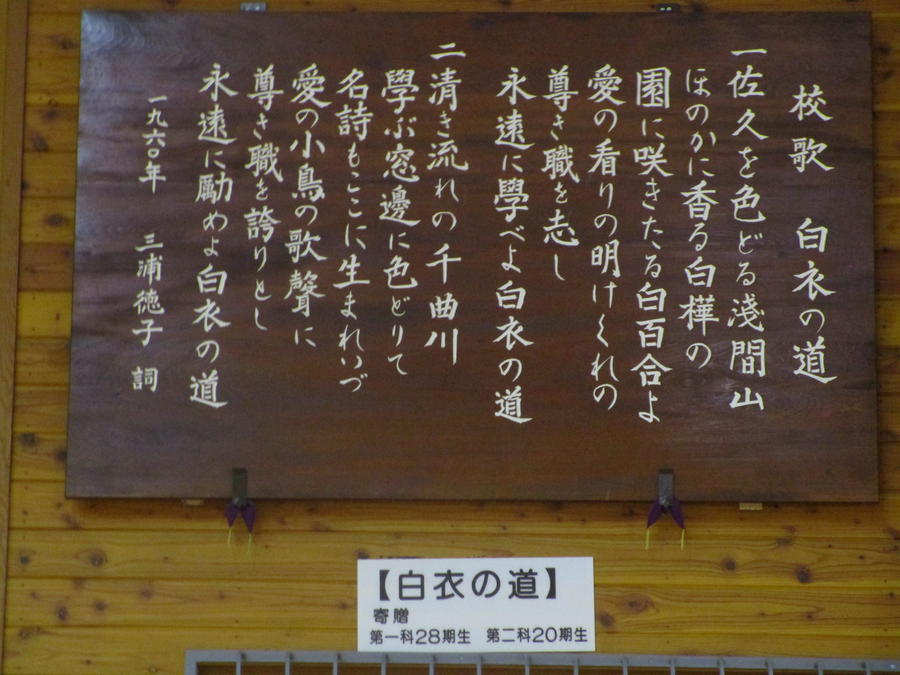 校歌 白衣の道
一佐久を色どる淺間山
ほのかに香る白樺の
園に咲きたる白百合よ
愛の看りの明けくれの
尊き職を志し
永遠に學べよ白衣の道
二清き流れの千曲川
學ぶ窓邊に色どりて
名詩もここに生まれいづ
愛の小鳥の歌聲に
尊き職を誇りとし
永遠に勵めよ白衣の道
一九六〇年 三浦徳子 詞
【白衣の道】
寄贈
第一科28期生 第二科20期生